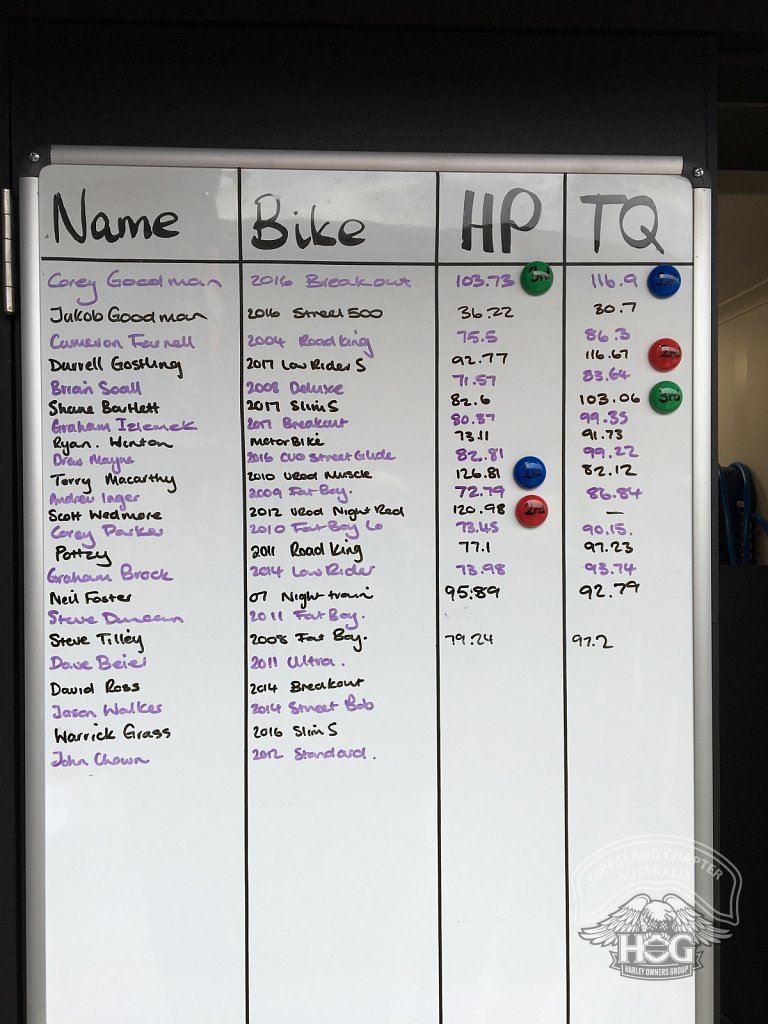 Name Bike HP TQ
Corey Goodman 2016 Breakout 103.73 3rd 116.9 1st
Jakob Goodman 2016 Street 500 36.22 30.7
Cameron Farnell 2004 Roadking 75.5 86.3
Darrell Gostling 2017 Low Rider S 92.77 116.67 2nd
Brian Soall 2008 Deluxe 71.57 83.64
Shane Bartlett 2017 Slim S 82.6 103.06 3rd
Graham Izlemek 2017 Breakout 80.37 99.35
Ryan. Wenton MotorBike 73.11 91.73
Drew Mayne 2016 CVO Street Glide 82.81 99.22
Terry Macarthy 2010 VRod Muscle 126.81 1st 82.12
Andrew Inger 2009 Fat Boy. 72.79 86.84
Scott Wedmore 2012 VRod Night Rod 120.98 2nd —
Corey Parker 2010 Fat Boy Lo 73.45 90.15.
Pottzy 2011 Road King 77.1 97.23
Graham Brock 2014 Low Rider 73.98 93.74
Neil Foster 07 Night train 95.89 92.79
Steve Duncan 2011 Fat Boy.
Steve Tilley 2008 Fat Boy. 79.24 97.2
Dave Beiel 2011 Ultra.
David Ross 2014 Breakout
Jason Walker 2014 Street Bob
Warrick Grass 2016 Slim S
John Chown 2012 Standard.
GIPPSLAND CHAPTER
AUSTRALIA
HOG
HARLEY OWNERS GROUP